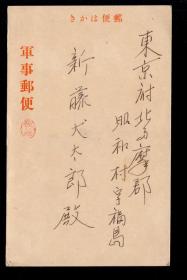 郵便はかき
軍事郵便
東京府北多摩郡
昭和村字福島
新藤犬太郎殿